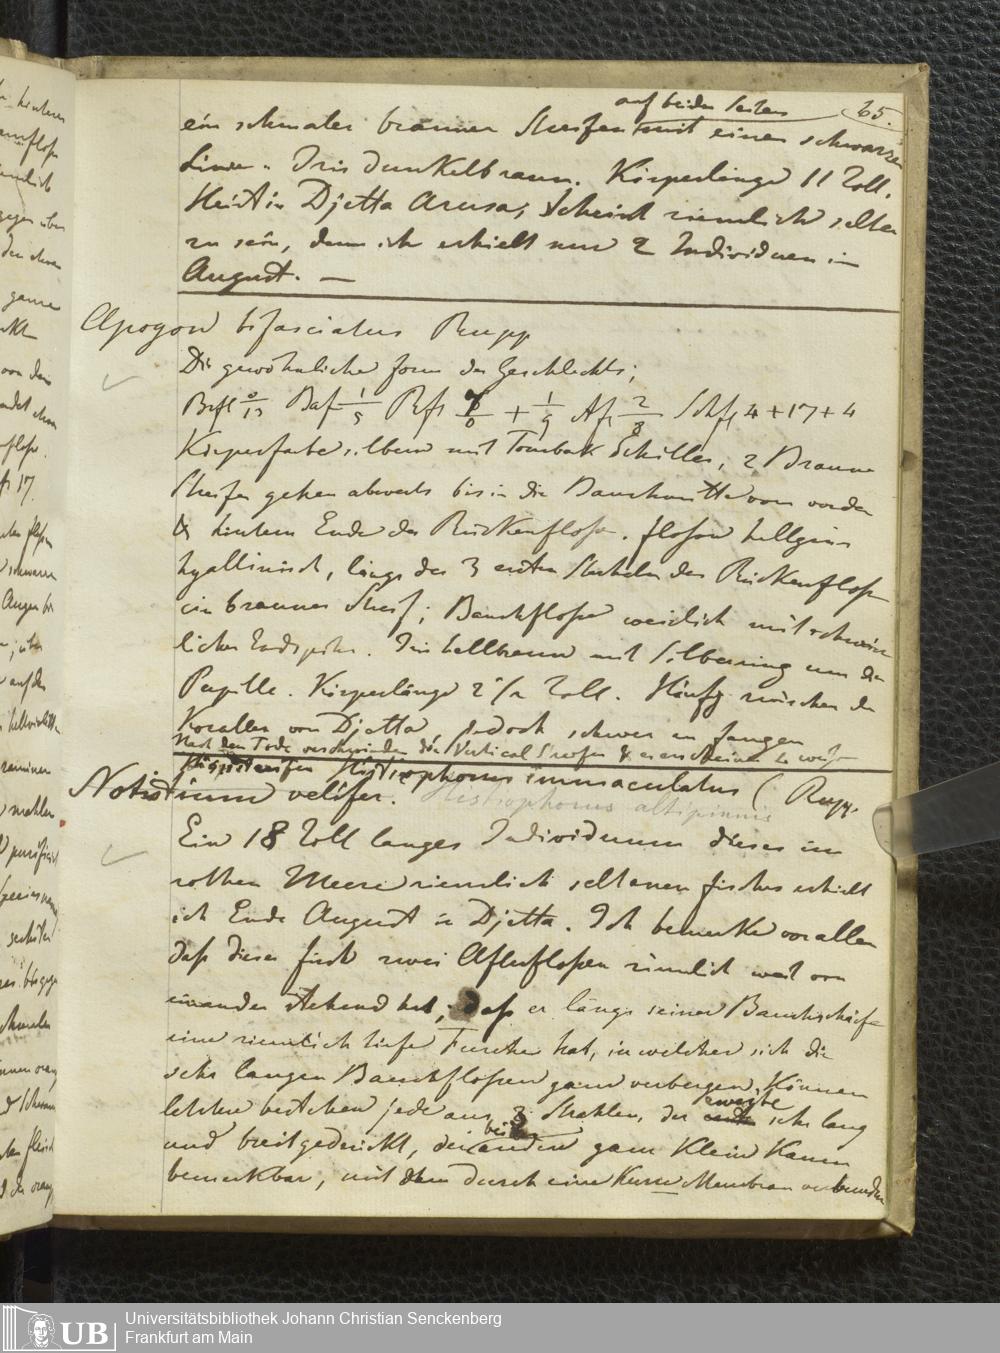 65.
auf beiden Seiten
ein schmaler brauner Streifen mit einer schwarzen
Linie. Iris dunkelbraun. Körperlänge 11 Zoll.
Heist in Djetta Arusa, scheint ziemlich selten
zu sein, denn ich erhielt nur 2 Individuen im
August. —
Apogon bifasciatus Rupp
Die gewöhnliche form des Geschlechts;
Körperfarbe silbern mit Tombak Schiller, 2 Braune
Streifen gehen abwerts bis in die Bauchmitte vom vorder
& hintern Ende der Rückenflosse. flossen hellgrau
hyallinisch, längs des 3 ersten Stacheln der Rückenflosse
ein brauner Streif; Bauchflosse weislich mit schwärz
licher Endspitze. Iris hellbraun mit Silberring um die
Pupille. Körperlänge 2 ½ Zoll. Häufig zwischen den
Korallen von Djetta jedoch schwer zu fangen
Nach dem Tode verschwinden die Vertical Streifen & es erscheinen
Histiophorus immaculatus (Rupp.
Notistium velifer. Histiophorus altipinnis
Ein 18 Zoll langes Individuum dieses im
rothen Meere ziemlich seltenen fisches erhielt
ich Ende August in Djetta. Ich bemerke vor allen
daß dieser fisch zwei Afterflossen ziemlich weit von
einander stehend hat, daß er längs seiner Bauchschärfe
eine ziemlich tiefe Furche hat, in welcher sich die
sehr langen Bauchflossen ganz verbergen können
letztere bestehen jede aus 3 Strahlen, der zweite sehr lang
und breitgedrückt, die andern ganz klein kaum
bemerkbar, mit dem durch eine kurze Membran verbunden
UB
Universitätsbibliothek Johann Christian Senckenberg
Frankfurt am Main